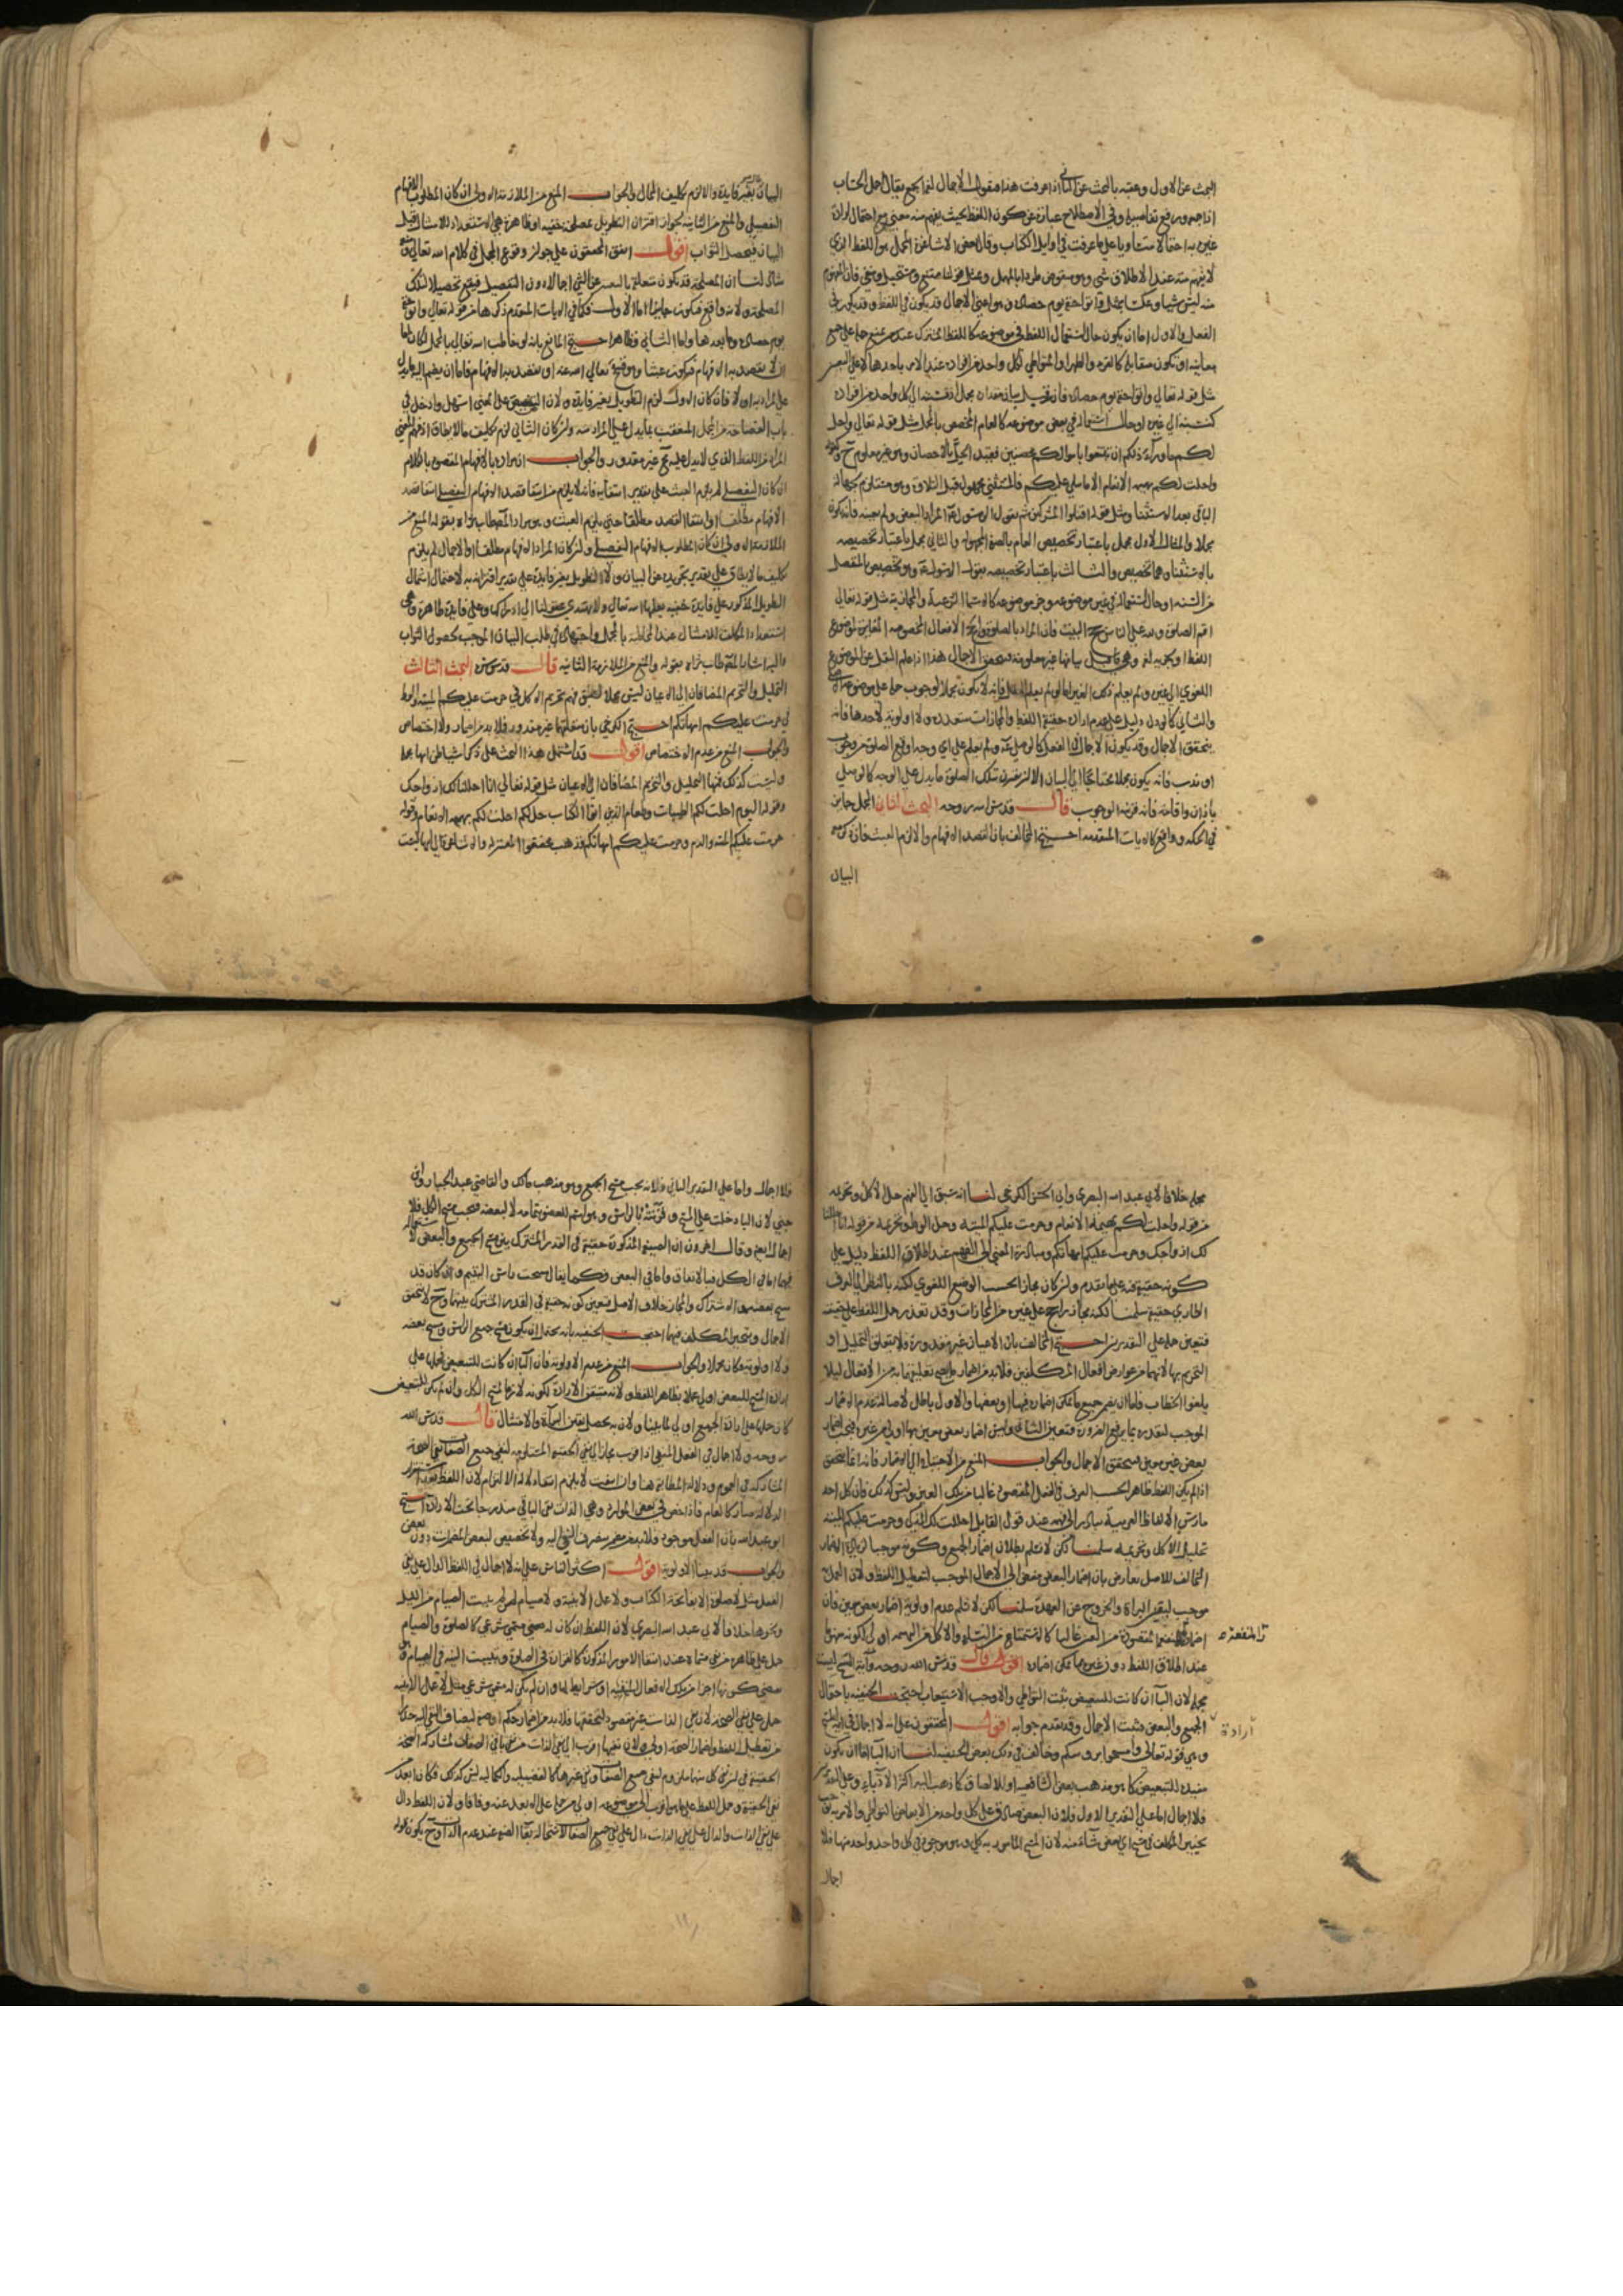 البحث عن الاول وعقبه بالبحث عن الثاني اذا عرفت هذا فنقول الاجمال لغة الجمع يقال اجمل الحساب
اذا جمعه ورفع تفاصيله وفي الاصطلاح عبارة عن كون اللفظ بحيث يفهم منه معنى مع احتمال ارادة
غيره به احتمالا متساويا على ما عرفت في اوايل الكتاب وقال بعض الاشاعرة المجمل هو اللفظ الذي
لا يفهم منه عند الاطلاق شي وهو منقوض طردا بالمهمل وبمثل قولنا ممتنع ومستحيل ومنفي فان المفهوم
منه ليس شيا وعكسا بمثل قوله واتوا حقه يوم حصاده الاجمال قد يكون في اللفظ وقد يكون في
الفعل والاول اما ان يكون حال استعمال اللفظ في موضوعه كاللفظ المشترك عند من منع حمله على جميع
معانيه او تكون متقابلة كالقرء والطهر او المتواطي لكل واحد من افراده عند الامر باحدها لا على التعيين
مثل قوله تعالى واتوا حقه يوم حصاده فانه قبل بيان مقداره مجمل نسبته الى كل واحد من افراده
كنسبته الى غيره او حال استعماله في بعض موضوعه كالعام المخصص بالمجمل مثل قوله تعالى واحل
لكم ما وراء ذلكم ان تبتغوا باموالكم محصنين فقيد الحل بالاحصان وهو غير معلوم وقوله
واحلت لكم بهيمة الانعام الا ما يتلى عليكم فالمستثنى مجهول قبل التلاوة وهو مستلزم لجهالة
الباقي بعد الاستثنا ومثل قوله اقتلوا المشركين ثم يقول الرسول المراد البعض ولم يعينه فانه يكون
مجملا والمثال الاول مجمل باعتبار تخصيص العام بالصفة المجهولة والثاني مجمل باعتبار تخصيصه
بالاستثنا وهما تخصيص والثالث باعتبار تخصيصه بقول الرسول وهو تخصيص المنفصل
من السنة او حال استعماله في غير موضوعه وغير موضوعه كالاسماء الشرعية والمجازية مثل قوله تعالى
اقم الصلوة ولله على الناس حج البيت فان المراد بالصلوة والحج الافعال المخصوصة المغايرة لموضوع
اللفظ وهي قبل بيانها غير معلومة فيتحقق الاجمال هذا اذا علم النقل عن الموضوع
اللغوي الى غيره ولم يعلم ذلك الغير اما لو لم يعلم النقل فانه لا يكون مجملا لوجوب حمله على موضوعه
والثاني كما لو دل دليل على عدم ارادة حقيقة اللفظ والمجازات متعددة ولا اولوية لاحدها فانه
يتحقق الاجمال وقد يكون الاجمال في الفعل كما لو صلى ولم يعلم على اي وجه اوقع الصلوة من وجوب
او ندب فانه يكون مجملا محتاجا الى البيان الا ان يقترن بتلك الصلوة ما يدل على الوجه كما لو صلى
باذان واقامة فانه قرينة الوجوب قال قدس الله روحه البحث الثاني المجمل جايز
في الحكمة وواقع كالايات المتقدمة احتج المخالف بان القصد الافهام والا لزم العبث فان كان مع
البيان
البيان بغير فايدة والا لزم تكليف المحال والجواب المنع من الملازمة الاولى ان كان المطلوب الافهام
التفصيلي والمنع من الثانية لجواز اقتران التطويل بمصلحة خفية او ظاهرة هي الاستعداد للامتثال قبل
البيان فيحصل الثواب اقول اتفق المحققون على جواز وقوع المجمل في كلام الله تعالى
لنا ان المصلحة قد تكون متعلقة بالتعبير عن الشي اجمالا دون التفصيل فيقع تحصيلا لتلك
المصلحة ولانه واقع فيكون جايزا اما الاول فكما في الايات المتقدم ذكرها من قوله تعالى واتوا حقه
يوم حصاده وما بعدها واما الثاني فظاهر احتج المانع بانه لو خاطب الله تعالى بالمجمل لكان اما
ان لا يقصد به الافهام فيكون عبثا وهو قبيح تعالى الله عنه او يقصد به الافهام فاما ان يضم اليه ما يدل
على المراد به او لا فان كان الاول لزم التطويل بغير فايدة ولان التنصيص على المعنى اسهل وادخل في
باب الفصاحة من المجمل المتعقب بما يدل على المراد منه وان كان الثاني لزم تكليف ما لا يطاق اذ فهم المعنى
المراد من اللفظ الذي لا يدل عليه غير مقدور والجواب ان المراد بالافهام المقصود بالكلام
ان كان التفصيلي لم يلزم العبث على تقدير انتفائه فانه لا يلزم من انتفا قصد الافهام التفصيلي انتفا قصد
الافهام مطلقا وانتفا القصد مطلقا حتى يلزم العبث وهو مراد المصنف طاب ثراه بقوله المنع من
الملازمة الاولى ان كان المطلوب الافهام التفصيلي وان كان المراد الافهام مطلقا والاجمال لم يلزم
تكليف ما لا يطاق على تقدير تجريده عن البيان ولا التطويل بغير فايدة على تقدير اقترانه به لاحتمال اشتمال
التطويل المذكور على فايدة خفية يعلمها الله تعالى ولا تهتدي عقولنا الى ادراكها وعلى فايدة ظاهرة وهي
استعداد المكلف للامتثال عند المخاطبة بالمجمل واجتهاده في طلب البيان الموجب لحصول الثواب
واليه اشار المصنف طاب ثراه بقوله والمنع من الملازمة الثانية قال قدس سره البحث الثالث
التحليل والتحريم المضافان الى الاعيان ليس مجملا لسبق فهم تحريم الاكل في حرمت عليكم الميتة والوطي
في حرمت عليكم امهاتكم احتج الكرخي بان متعلقها غير مقدور فلا بد من اضمار ولا اختصاص
والجواب المنع من عدم الاختصاص اقول قد اشتمل هذا البحث على ذكر اشيا ظن انها مجملة
وليست كذلك فمنها التحليل والتحريم المضافان الى الاعيان مثل قوله تعالى انا احللنا لك ازواجك
وقوله اليوم احلت لكم الطيبات وطعام الذين اوتوا الكتاب حل لكم احلت لكم بهيمة الانعام وقوله
حرمت عليكم الميتة والدم وحرمت عليكم امهاتكم فذهب محققوا المعتزلة والاشاعرة الى انها ليست
مجملة خلافا لابي عبد الله البصري وابي الحسن الكرخي لنا انه يسبق الى الفهم حل الاكل وتحريمه
من قوله واحلت لكم بهيمة الانعام وحرمت عليكم الميتة وحل الوطي وتحريمه من قوله انا احللنا
لك ازواجك وحرمت عليكم امهاتكم ومبادرة المعنى الى الفهم عند اطلاق اللفظ دليل على
كونه حقيقة فيه على ما تقدم وان كان مجازا بحسب الوضع اللغوي لكنه بالنظر الى العرف
الطاري حقيقة سلمنا لكنه مجاز راجح على غيره من المجازات وقد تعذر حمل اللفظ على حقيقته
فتعين حمله على التقديرين احتج المخالف بان الاعيان غير مقدورة فلا يتعلق التحليل او
التحريم بها لانهما من عوارض افعال المكلفين فلا بد من اضمار ما يصح تعلقهما به من الافعال ليلا
يلغوا الخطاب فاما ان يضمر جميع ما يمكن اضماره فيها او بعضها والاول باطل لاصالة عدم الاضمار
الموجب لتقديره بما يرفع الضرورة فتعين الثاني وليس اضمار بعض معين منها اولى من غيره فيجب اضمار
بعض غير معين فيتحقق الاجمال والجواب المنع من الاحتياج الى الاضمار فانه انما يتحقق
اذا لم يكن اللفظ ظاهرا بحسب العرف في الفعل المقصود غالبا من تلك العين وليس كذلك فان كل احد
مارس الالفاظ العربية يتبادر الى فهمه عند قول القايل احللت لك المذكى وحرمت عليكم الميتة
تحليل الاكل وتحريمه سلمنا لكن لا نسلم بطلان اضمار الجميع وكونه موجبا لزيادة الاضمار
المخالف للاصل معارض بان اضمار البعض مفض الى الاجمال الموجب لتعطيل اللفظ ولان الحمل
موجب ليقين البراءة والخروج عن العهدة سلمنا لكن لا نسلم عدم اولوية اضمار بعض معين فان
اضمار المنفعة المقصودة من العين غالبا كالاستمتاع من النساء والاكل من البهيمة اولى لكونه مفهوما
عند اطلاق اللفظ دون غيره مما يمكن اضماره قال قدس الله روحه واية المسح ليست
مجملة لان الباء ان كانت للتبعيض ثبت التواطي والا وجب الاستيعاب احتجت الحنفية باحتمال
ارادة الجميع والبعض فيثبت الاجمال وقد تقدم جوابه اقول المحققون على انه لا اجمال في اية المسح
وهي قوله تعالى وامسحوا برؤسكم وخالف في ذلك بعض الحنفية لنا ان الباء اما ان تكون
مفيدة للتبعيض كما هو مذهب بعض الشافعية او للالصاق كما ذهب اليه اكثر الادباء وعلى التقديرين
فلا اجمال اما على التقدير الاول فلان البعض صادق على كل واحد من الابعاض بالتواطي
يتخير المكلف في مسح اي بعض شاء منه لان المسح المامور به كلي وهو موجود في كل واحد واحد منها فلا
اجمال
فلا اجمال واما على التقدير الثاني فلانه يجب مسح الجميع وهو مذهب مالك والقاضي عبد الجبار وابن
جني لان الباء دخلت على المسح وقرنته بالراس وهو اسم للعضو بتمامه لا لبعضه فيجب مسح الكل فلا
اجمال ايضا وقال اخرون ان الصيغة المذكورة حقيقة في القدر المشترك بين مسح الجميع والبعض لاستعماله
فيهما اما في الكل فبالاتفاق واما في البعض فكما يقال مسحت براس اليتيم وان كان قد
مسح بعضه والاشتراك والمجاز خلاف الاصل فتعين كونه حقيقة في القدر المشترك بينهما فلا يتحقق
الاجمال ويتخير المكلف فيهما احتجت الحنفية بانه يحتمل ان يكون مسح جميع الراس ومسح بعضه
ولا اولوية فكان مجملا والجواب المنع من عدم الاولوية فان الباء ان كانت للتبعيض فحملها على
ارادة المسح للبعض اولى عملا بظاهر اللفظ ولانه متيقن الارادة لكونه لازما لمسح الكل وان لم يكن للتبعيض
كان حملها على ارادة الجميع اولى لما بينا ولانه يحصل يقين البراءة والامتثال قال قدس الله
روحه ولا اجمال في الفعل المنفي اذ اقرب مجاز الى نفي الحقيقة المتناولة لنفي جميع الصفات نفي الصحة
المشاركة في العموم ودلالة المطابقة هنا وان انتفت لا يلزم انتفاء دلالة الالتزام لان اللفظ بعد استقرار
الدلالة صار كالعام فاذا خص في بعض الموارد وهي الذات بقي الباقي مندرجا تحت الارادة احتج
ابو عبد الله بان الفعل موجود فلا بد من مضمر يصرف النفي اليه ولا تخصيص لبعض المضمرات دون بعض
والجواب قد بينا الاولوية اقول اكثر الناس على انه لا اجمال في اللفظ الدال على نفي
الفعل مثل لا صلوة الا بفاتحة الكتاب ولا عمل الا بنية ولا صيام لمن لم يبيت الصيام من الليل
ونحوها خلافا لابي عبد الله البصري لان اللفظ ان كان له مسمى شرعي كالصلوة والصيام
حمل على ظاهره من نفي مسماه عند انتفا الامور المذكورة كالقراءة في الصلوة وتبييت النية في الصيام
بمعنى كونها اجزاء من تلك الافعال المنفية او شرايط لها وان لم يكن له مسمى شرعي مثل لا عمل الا بنية
حمل على نفي الصحة لان نفي الذات غير مقصود لتحققها فلا بد من اضمار حكم او صفة ليضاف النفي اليه حذرا
من تعطيل اللفظ واضمار الصحة اولى لان نفيها اقرب الى نفي الذات من نفي باقي الصفات لمشاركة الصحة
الحقيقة في ان نفي كل منهما يلزم نفي جميع الصفات ونفي غيرها كالفضيلة والكمالية ليس كذلك فكان ابعد من
نفي الحقيقة وحمل اللفظ على ما هو اقرب الى موضوعه اولى من حمله على الابعد عنه وفاقا ولان اللفظ دال
على نفي الذات والدال على نفي الذات دال على نفي جميع الصفات لاستحالة بقاء الصفة عند عدم الذات